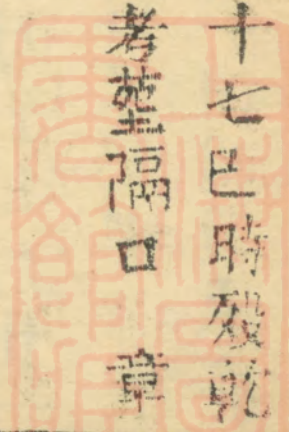 十七巳時歿乾
考塋隔口　章